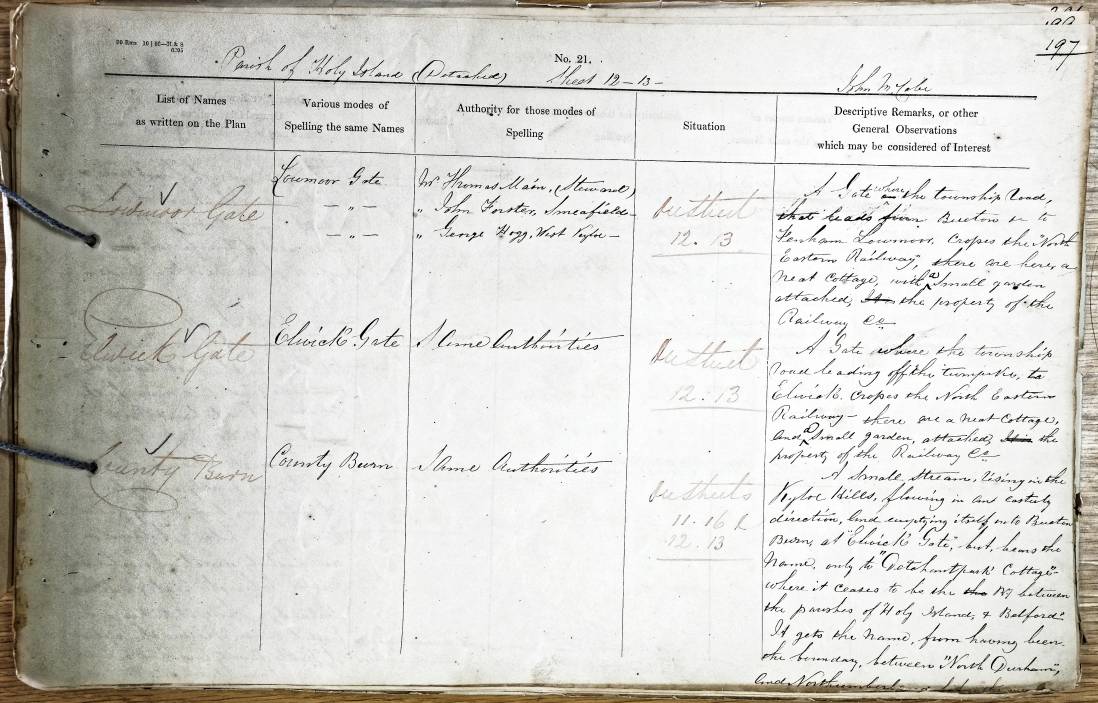 197
No. 21.
Parish of Holy Island (Detached) Sheet 12-13-
John McCabe
List of Names
as written on the Plan
Various modes of
Spelling the same Names
Authority for those modes of
Spelling
Situation
Descriptive Remarks, or other
General Observations
which may be considered of Interest
Lowmoor Gate
Lowmoor Gate
— „ —
— „ —
Mr Thomas Main, (Steward)
„ John Forster, Smeafield-
„ George Hogg, West Kyloe-
On Sheet
12. 13
A Gate where the township Road,
that leads from Buckton to
Fenham Lowmoor, crosses the "North
Eastern Railway", there are here, a
neat Cottage, with a Small garden
attached, the property of the
Railway Co
Elwick Gate
Elwick Gate
Same Authorities
On Sheet
12. 13
A Gate where the township
road leading off the turnpike, to
Elwick. crosses the North Eastern
Railway- there are a neat Cottage,
and a Small garden, attached, It is the
property of the Railway Co
County Burn
County Burn
Same Authorities
On Sheets
11. 16 &
12. 13
A Small Stream, rising in the
Kyloe Hills, flowing in an easterly
direction, and emptying itself into Buckton
Burn, at "Elwick Gate", but, bears the
Name, only to "Detchantpark Cottage"-
where it ceases to be the By between
the parishes of Holy Island, & Belford.
It gets the name, from having been
the boundary, between "North Durham",
and